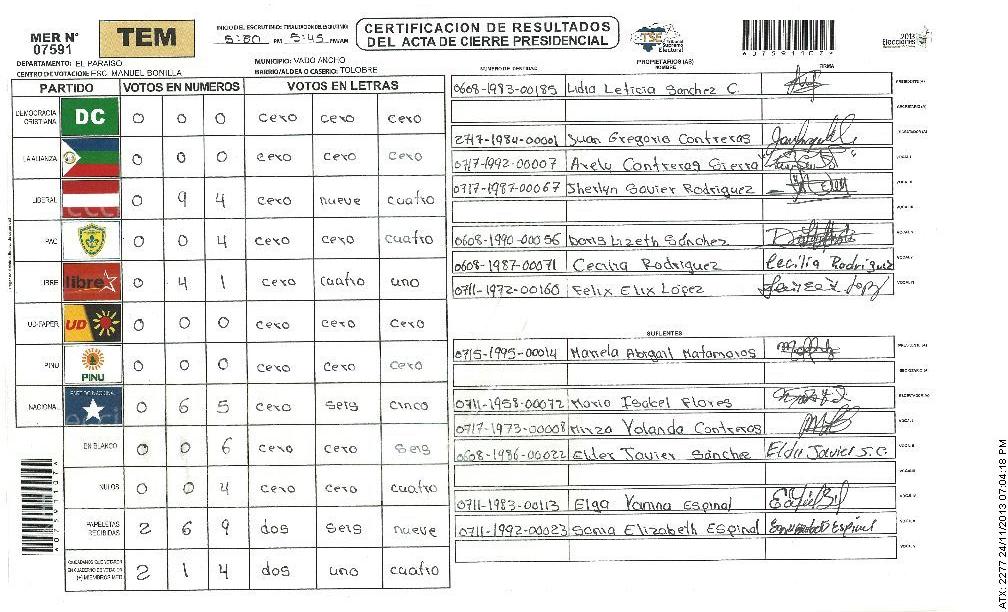 MER N° 07591
TEM
INICIO DEL ESCRUTINIO: FINALIZACION DEL ESCRUTINIO:
5:30 PM 5:45 PM/AM
CERTIFICACION DE RESULTADOS DEL ACTA DE CIERRE PRESIDENCIAL
TSE Tribunal Supremo Electoral
2013 Elecciones
DEPARTAMENTO: EL PARAISO
MUNICIPIO: VADO ANCHO
CENTRO DE VOTACION: ESC. MANUEL BONILLA
BARRIO/ALDEA O CASERIO: TOLOBRE
PARTIDO VOTOS EN NUMEROS VOTOS EN LETRAS
DEMOCRACIA CRISTIANA DC 0 0 0 cero cero cero
LA ALIANZA 0 0 0 cero cero cero
LIBERAL 0 9 4 cero nueve cuatro
PAC 0 0 4 cero cero cuatro
LIBRE libre 0 4 1 cero cuatro uno
UD-FAPER UD 0 0 0 cero cero cero
PINU PINU 0 0 0 cero cero cero
NACIONAL PARTIDO NACIONAL 0 6 5 cero seis cinco
EN BLANCO 0 0 6 cero cero seis
NULOS 0 0 4 cero cero cuatro
PAPELETAS RECIBIDAS 2 6 9 dos seis nueve
CIUDADANOS QUE VOTARON EN CUADERNO DE VOTACION (+) MIEMBROS MER 2 1 4 dos uno cuatro
PROPIETARIOS (AS)
NUMERO DE IDENTIDAD NOMBRE FIRMA
0608-1983-00185 Lidia Leticia Sanchez C. PRESIDENTE (A)
SECRETARIO (A)
2717-1984-00001 Juan Gregorio Contreras ESCRUTADOR (A)
0717-1992-00007 Arely Contreras Sierra VOCAL I
0717-1987-00067 Sherlyn Savier Rodriguez VOCAL II
0608-1990-00056 Doris Lizeth Sánchez
0608-1987-00071 Cecilia Rodriguez Cecilia Rodriguez
0711-1972-00160 Felix Elix López
SUPLENTES
0715-1995-00014 Mariela Abigail Matamoros PRESIDENTE (A)
SECRETARIO (A)
0711-1958-00072 Maria Isabel Flores ESCRUTADOR (A)
0717-1973-00008 Mirza Yolanda Contreras VOCAL I
0608-1986-00022 Elder Javier Sánchez Elder Javier S.C. VOCAL II
0711-1983-00113 Elga Yamna Espinal
0711-1992-00023 Sonia Elizabeth Espinal
ATX: 2277 24/11/2013 07:04:18 PM